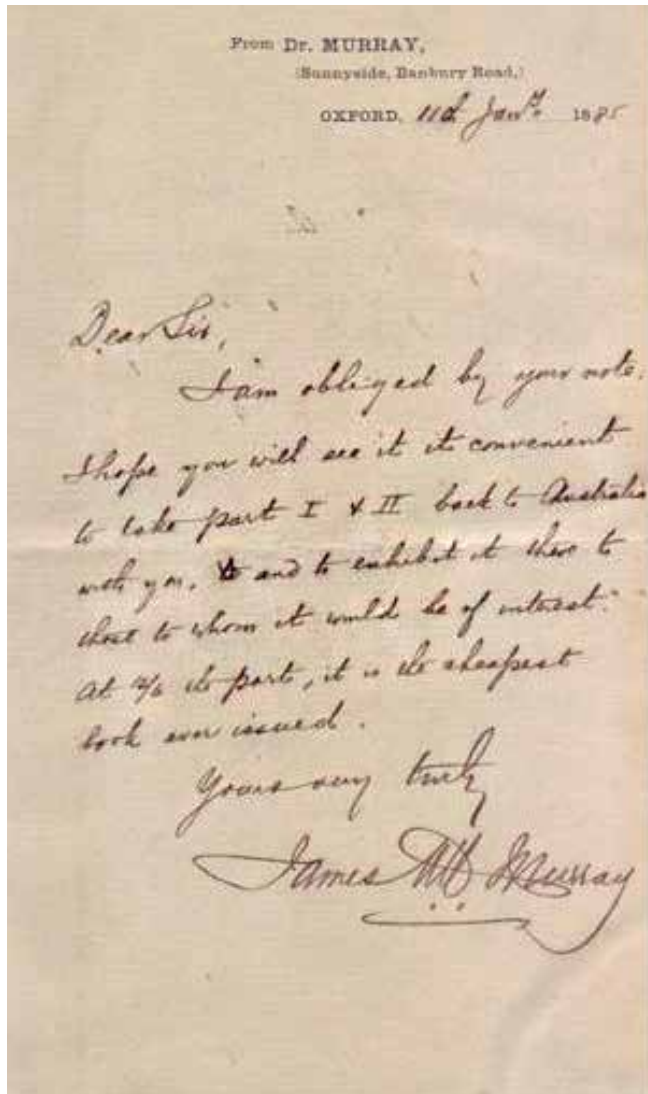 From Dr. MURRAY,
(Sunnyside, Banbury Road,)
OXFORD, 11th Jany. 1885
Dear Sir,
I am obliged by your note.
I hope you will see it convenient
to take part I & II back to Australia
with you, and to exhibit it there to
those to whom it would be of interest.
At the part, it is the cheapest
book ever issued.
Yours very truly
James A H Murray